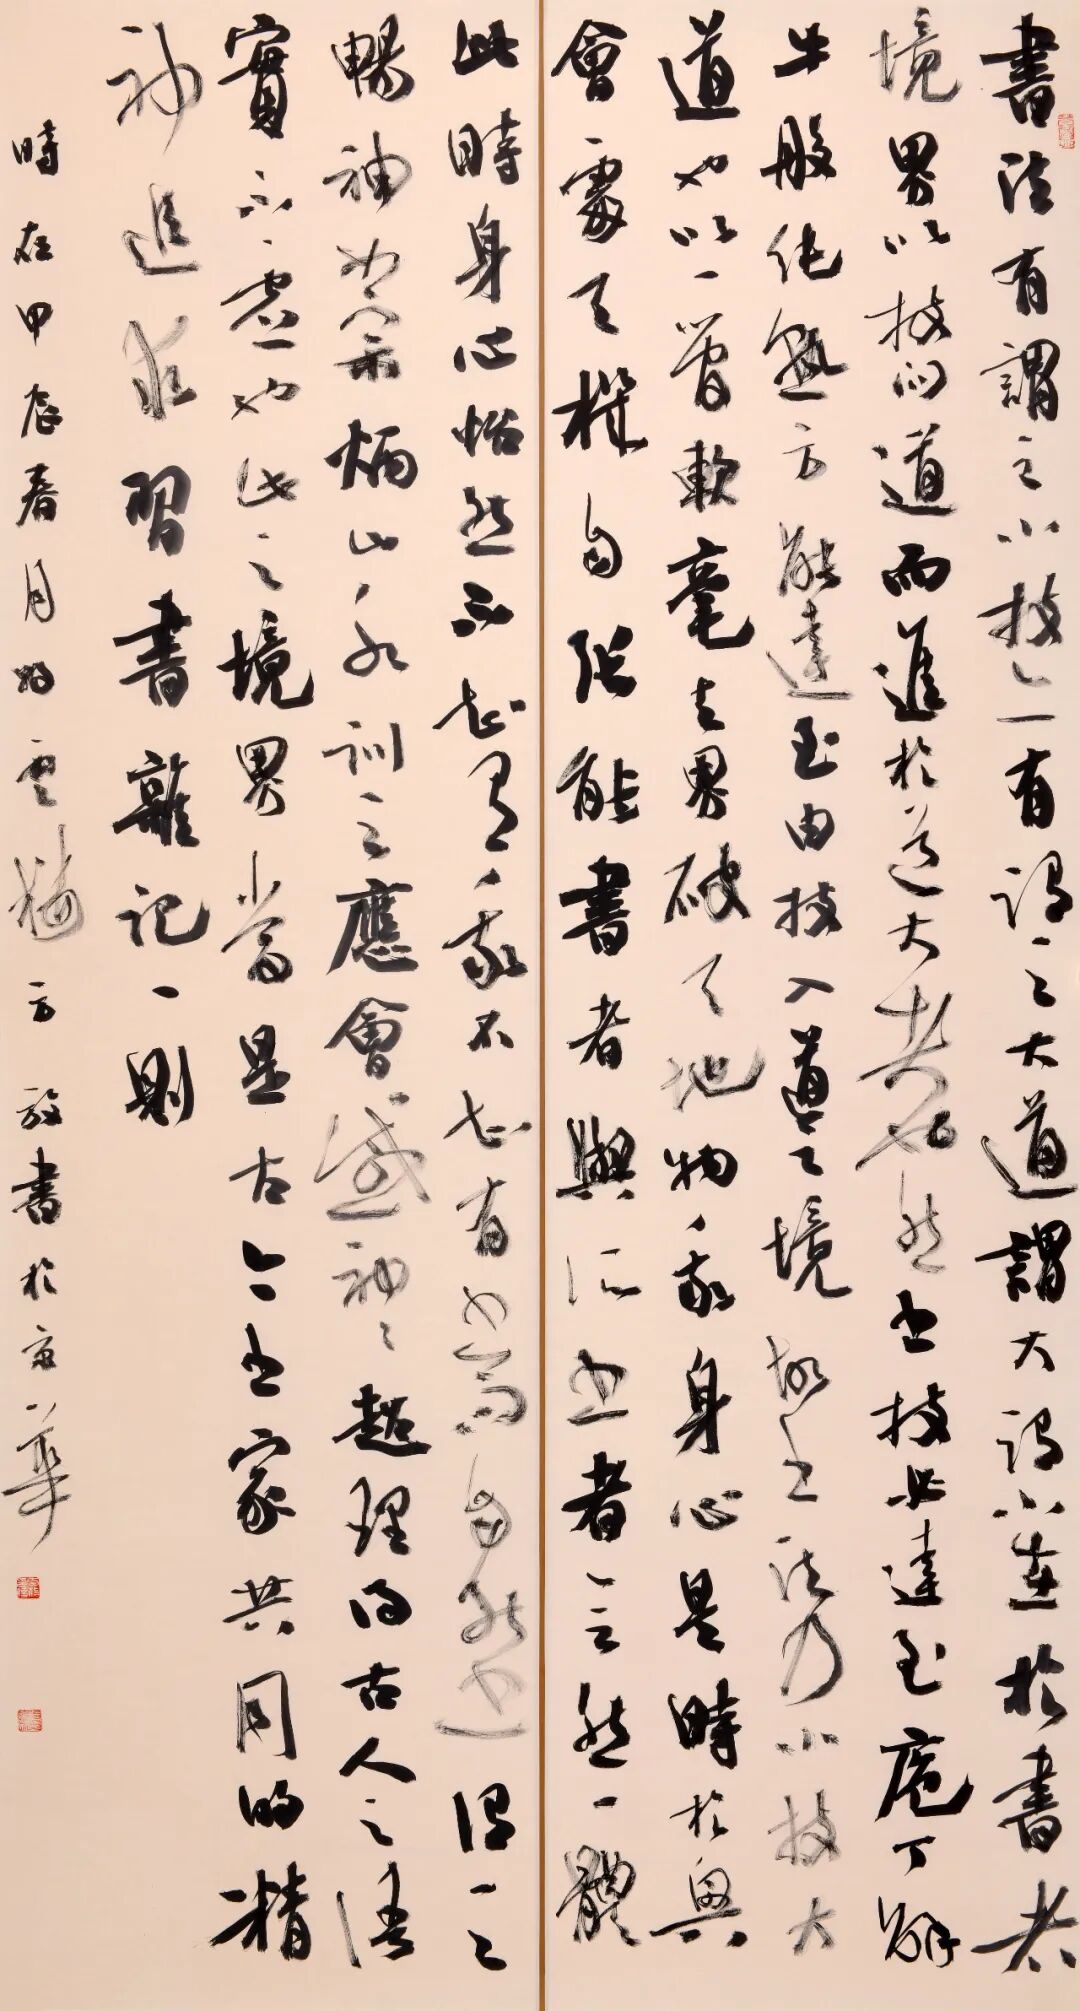 書法有謂之小技亦有謂之大道謂大謂小蓋於書者
境界以技向道而進於道大者如然書技必達至庖丁解
牛般純熟方能達至由技入道之境故書法乃小技大
道也以一管軟毫去界破天地物我身心是時於與
會處天機自張能書者與所書者三者然一體
此時身心恬然而忘有我不忘有書自然也謂之
暢神如宗炳山水訓之應會感神神超理得古人之語
實不虛也此之境界當是古今書家共同的精
神追求習書雜記一則
時在甲辰春月 雲 方放書於京華